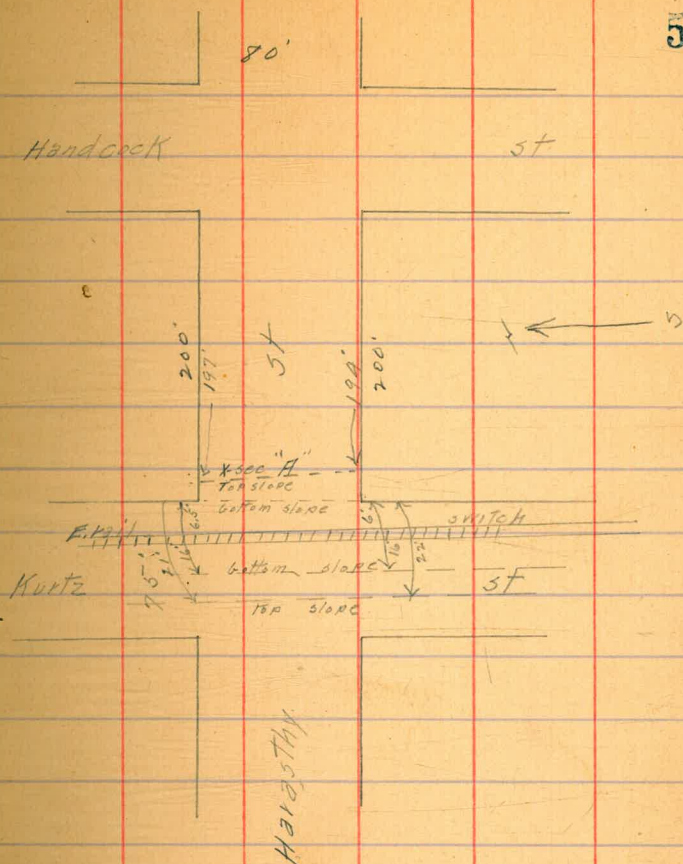 5
80'
Handcock st
200' 197' st 194' 200'
5
X-sec "A"
Top slope
bottom slope
6.5' 6'
E. rail switch
16' 16' 22'
75' 21' bottom slope
Kurtz st
Top slope
Harasthy